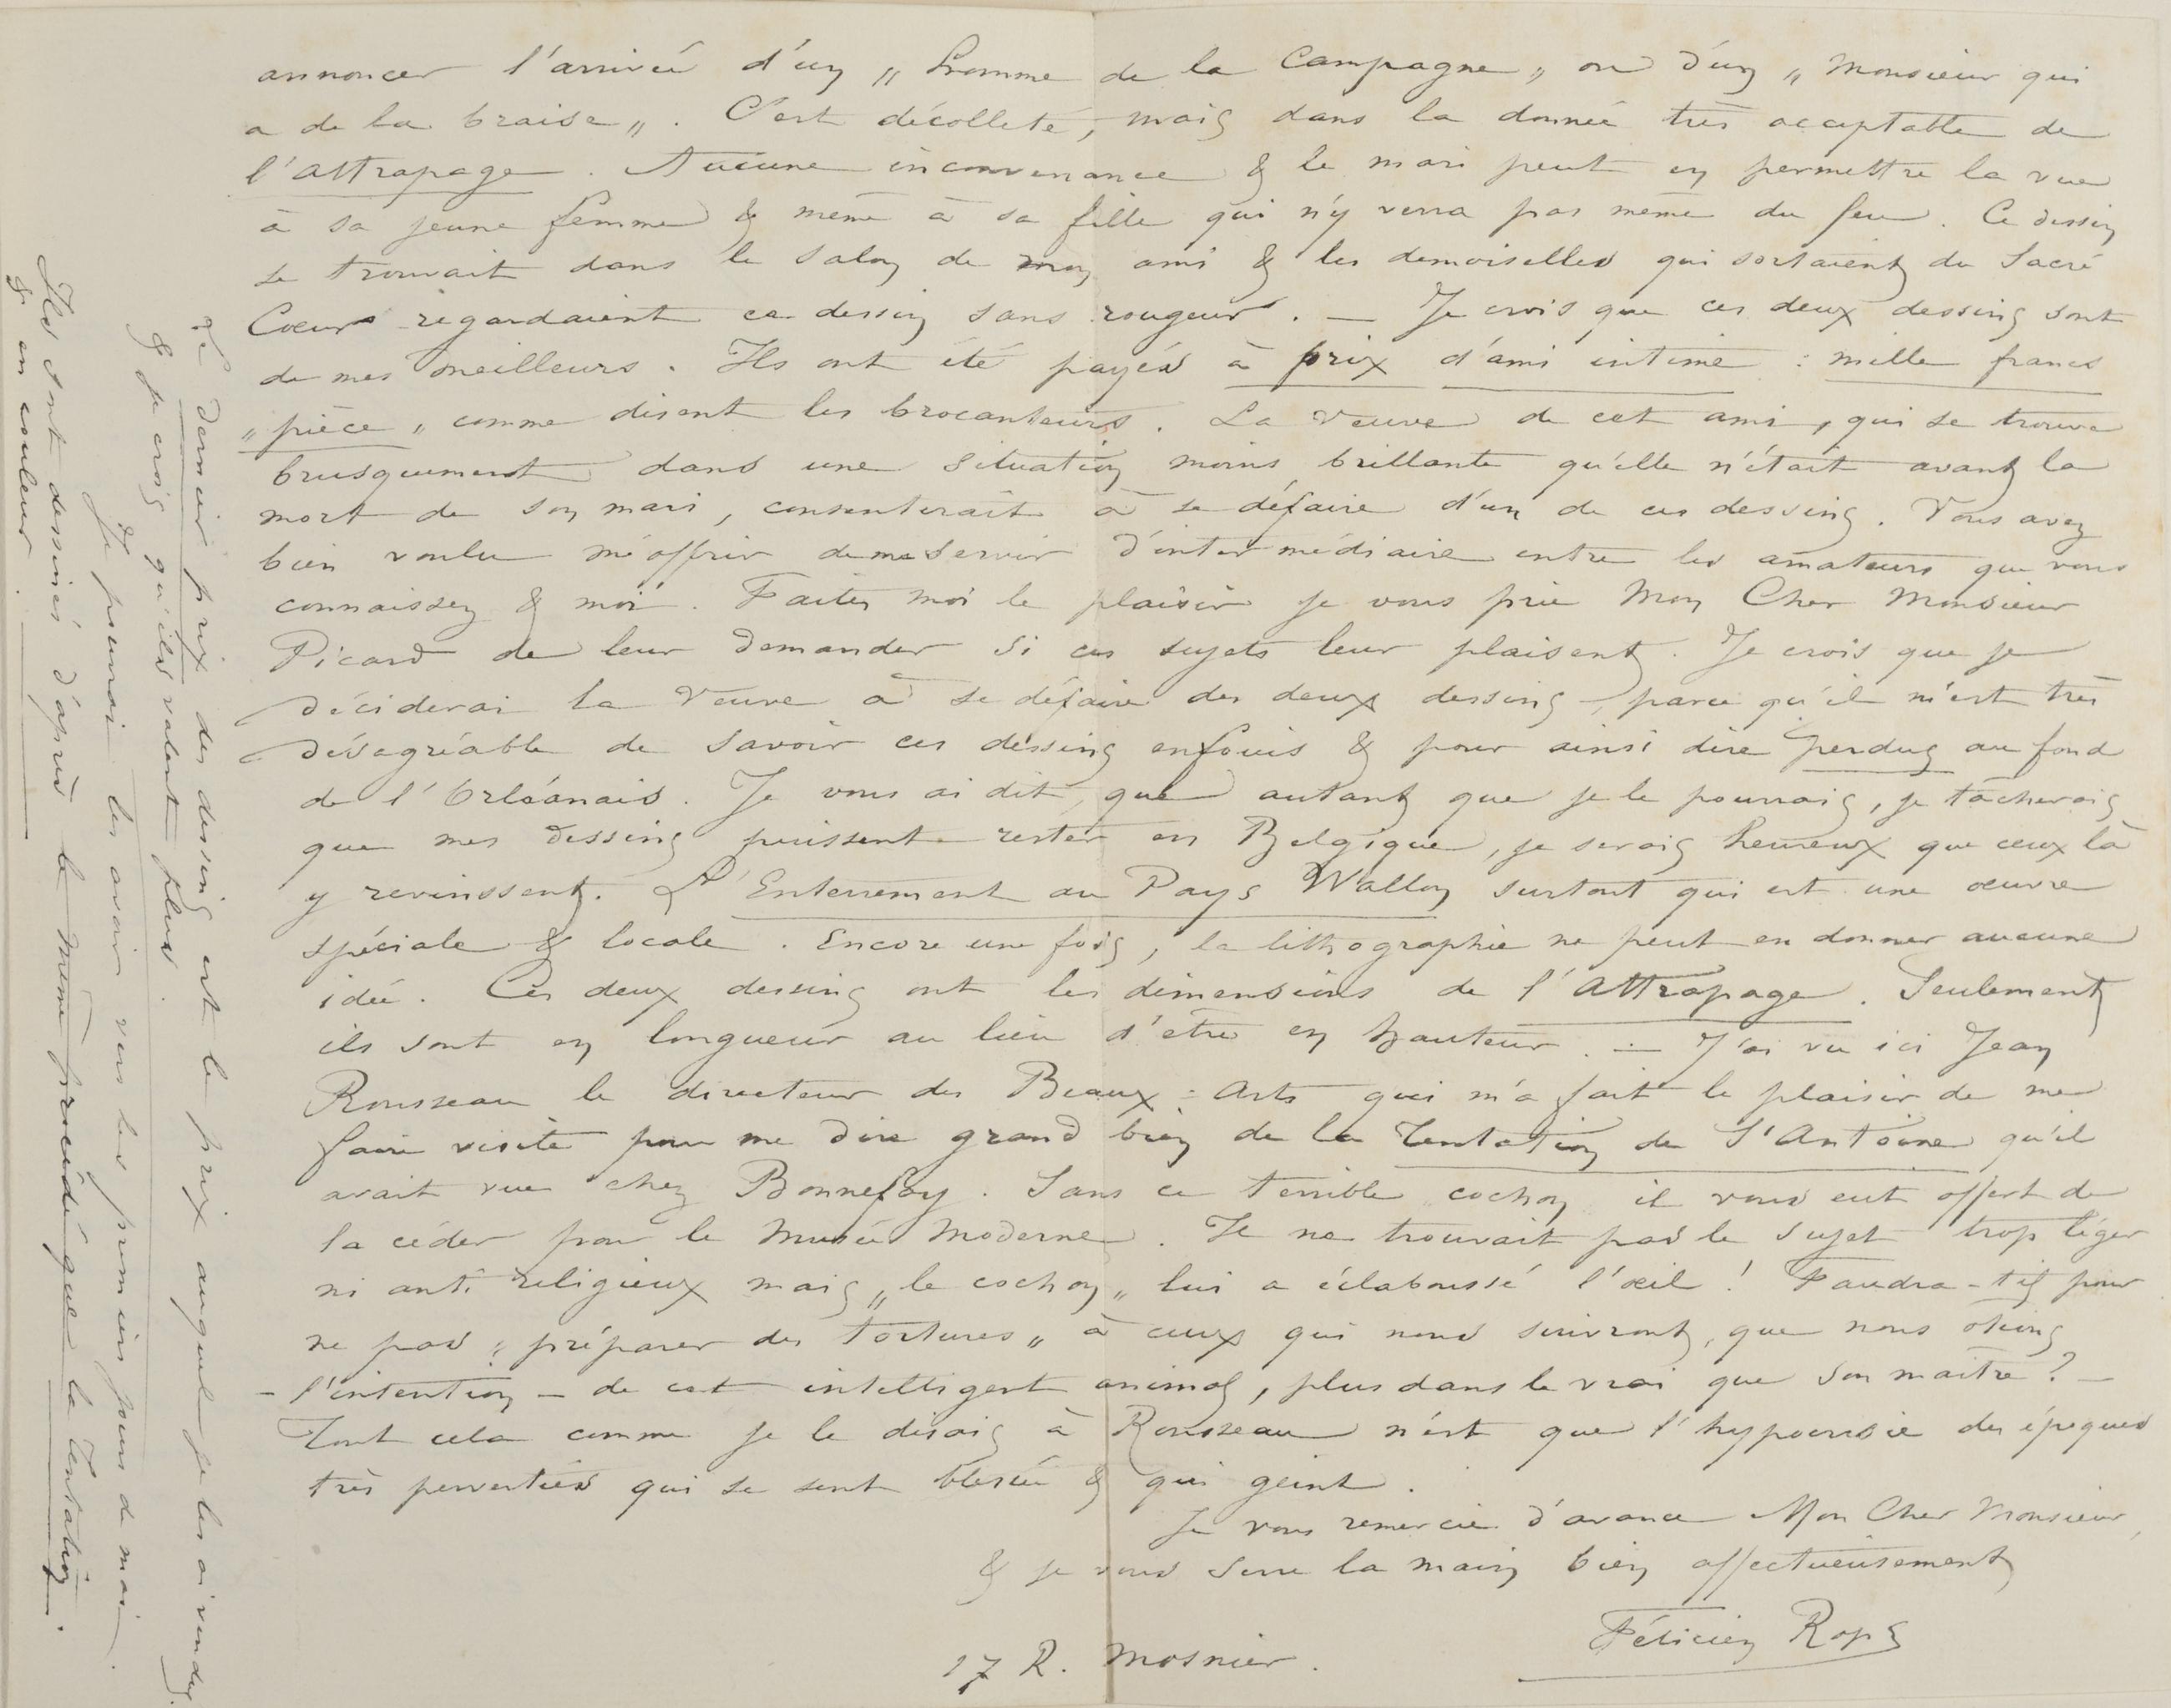 annoncer l'arrivée d'un „ homme de la Campagne „ ou d'un „ Monsieur qui
a de la braise „. C'est décolleté, mais dans la donnée très acceptable de
l'Attrapage. Aucune inconvenance & le mari peut en permettre la vue
à sa jeune femme & même à sa fille qui n'y verra pas même du feu. Ce dessin
se trouvait dans le salon de mon ami & les demoiselles qui sortaient du Sacré
Cœur regardaient ce dessin sans rougeur. — Je crois que ces deux dessins sont
de mes meilleurs. Ils ont été payés à prix d'ami intime : mille francs
„ pièce „ comme disent les brocanteurs. La Veuve de cet ami, qui se trouve
brusquement dans une situation moins brillante qu'elle n'était avant la
mort de son mari, consentirait à se défaire d'un de ces dessins. Vous avez
bien voulu m'offrir de me servir d'intermédiaire entre les amateurs que vous
connaissez & moi. Faites moi le plaisir je vous prie Mon Cher Monsieur
Picard de leur demander si ces sujets leur plaisent. Je crois que je
déciderai la Veuve à se défaire des deux dessins, parce qu'il m'est très
désagréable de savoir ces dessins enfouis & pour ainsi dire perdus au fond
de l'Orléanais. Je vous ai dit, que autant que je le pourrais, je tâcherais
que mes dessins puissent rester en Belgique, je serais heureux que ceux là
y revinssent. L'Enterrement au Pays Wallon surtout qui est une œuvre
spéciale & locale. Encore une fois, la lithographie ne peut en donner aucune
idée. Ces deux dessins ont les dimensions de l'Attrapage. Seulement
ils sont en longueur au lieu d'être en hauteur. — J'ai vu ici Jean
Rousseau le directeur des Beaux-Arts qui m'a fait le plaisir de me
faire visite pour me dire grand bien de la Tentation de St Antoine qu'il
avait vue chez Bonnefoy. Sans ce terrible cochon il vous eut offert de
la céder pour le Musée Moderne. Il ne trouvait pas le sujet trop léger
ni anti religieux mais „ le cochon „ lui a éclaboussé l'œil ! Faudra-t'il pour
ne pas „ préparer des tortures „ à ceux qui nous suivront, que nous ôtions
— l'intention — de cet intelligent animal, plus dans le vrai que son maître ? —
Tout cela comme je le disais à Rousseau n'est que l'hypocrisie des époques
très perverties qui se sent blessée & qui geint.
Je vous remercie d'avance Mon Cher Monsieur,
& je vous serre la main bien affectueusement
Félicien Rops
17 R. Mosnier.
Le dernier prix des dessins est le prix auquel je les ai vendus.
& je crois qu'ils valent plus.
Je pourrai les avoir vers les premiers jours de mai.
Ils sont dessinés d'après le même procédé que la Tentation.
& en couleur.